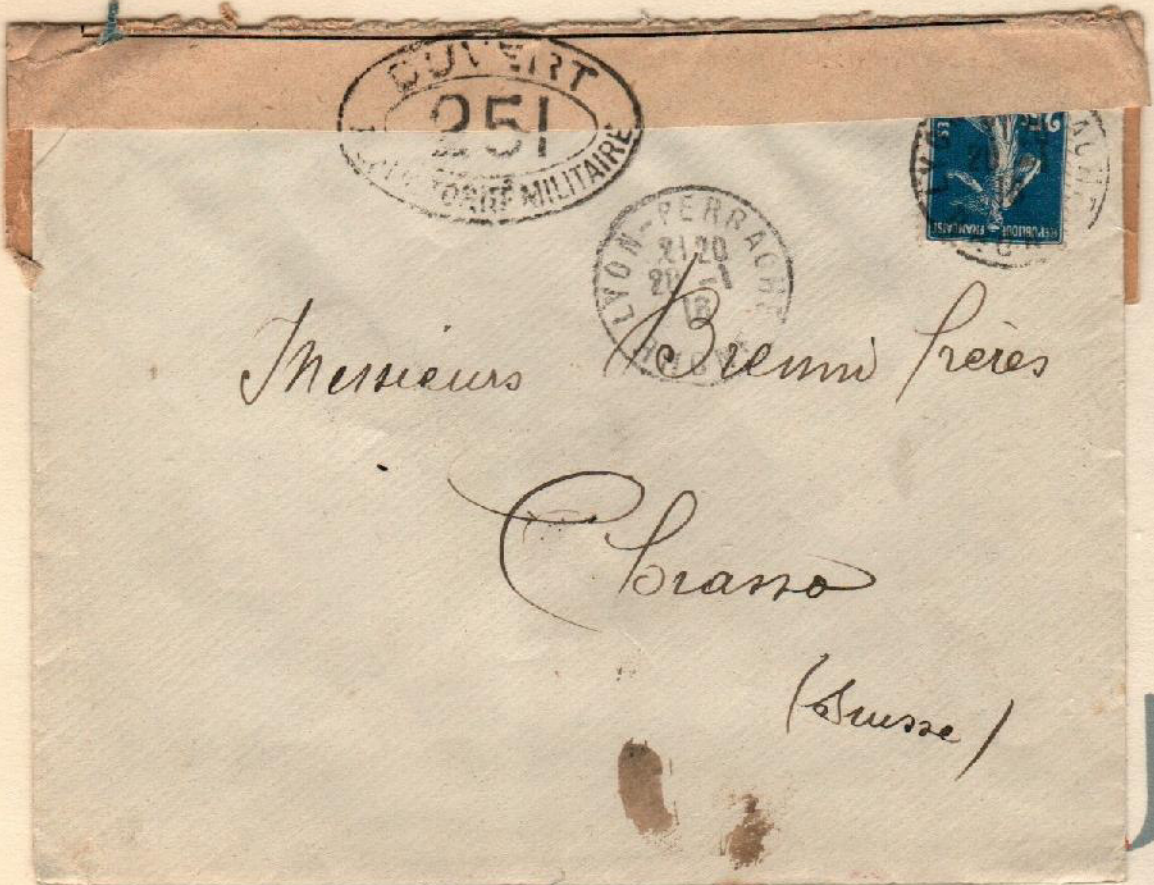 OUVERT
251
PAR L'AUTORITÉ MILITAIRE
LYON-PERRACHE
21 20
20 -1
16
RHONE
RÉPUBLIQUE FRANÇAISE
Messieurs Brenni frères
Chiasso
(Suisse)